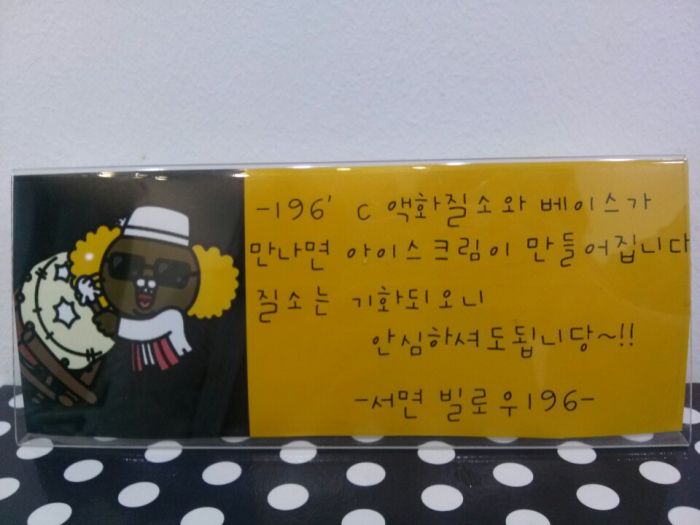 -196' c 액화질소와 베이스가
만나면 아이스크림이 만들어집니다
질소는 기화되오니
안심하셔도됩니당~!!
-서면 빌로우196-